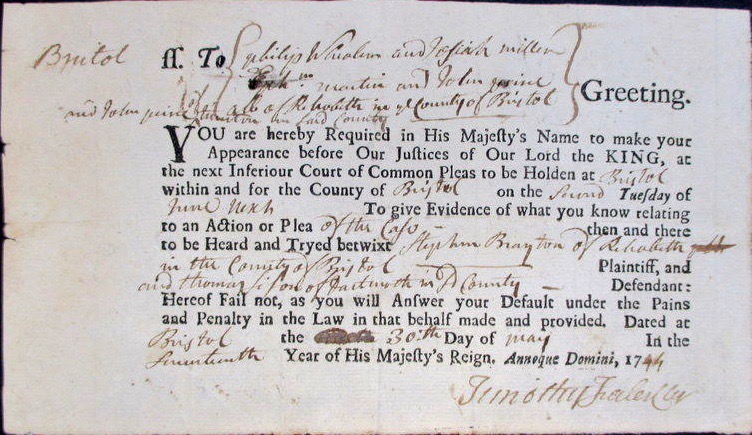 Bristol ss. To philip Wheelen and Josiah miller
Eph:m martin and John
all of Rehoboth in ye County of Bristol Greeting.
and John of Taunton in said County
YOU are hereby Required in His Majesty's Name to make your
Appearance before Our Justices of Our Lord the KING, at
the next Inferiour Court of Common Pleas to be Holden at Bristol
within and for the County of Bristol on the second Tuesday of
June next To give Evidence of what you know relating
to an Action or Plea of the Case then and there
to be Heard and Tryed betwixt Stephen Brayton of Rehoboth
in the County of Bristol Plaintiff, and
and thomas of Dartmouth in sd County Defendant:
Hereof Fail not, as you will Answer your Default under the Pains
and Penalty in the Law in that behalf made and provided. Dated at
Bristol the 30th Day of may In the
Seventeenth Year of His Majesty's Reign, Annoque Domini, 1744
Timothy